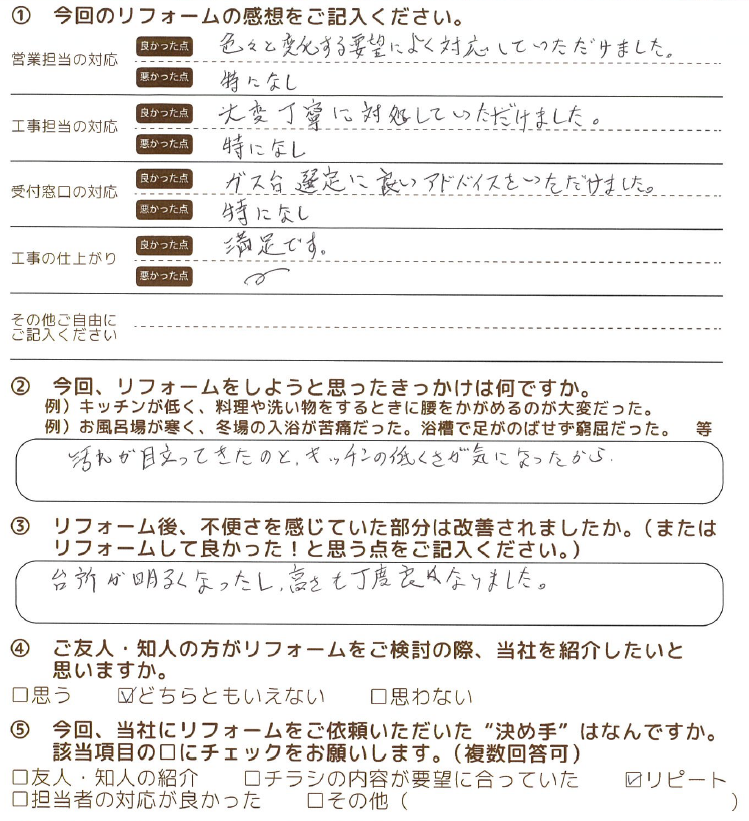 ① 今回のリフォームの感想をご記入ください。
営業担当の対応 良かった点 色々と変化する要望によく対応していただけました。
悪かった点 特になし
工事担当の対応 良かった点 大変丁寧に対処していただけました。
悪かった点 特になし
受付窓口の対応 良かった点 ガス台選定に良いアドバイスをいただけました。
悪かった点 特になし
工事の仕上がり 良かった点 満足です。
悪かった点
その他ご自由に
ご記入ください
② 今回、リフォームをしようと思ったきっかけは何ですか。
例）キッチンが低く、料理や洗い物をするときに腰をかがめるのが大変だった。
例）お風呂場が寒く、冬場の入浴が苦痛だった。浴槽で足がのばせず窮屈だった。 等
汚れが目立ってきたのと、キッチンの低くさが気になったから.
③ リフォーム後、不便さを感じていた部分は改善されましたか。（または
リフォームして良かった！と思う点をご記入ください。）
台所が明るくなったし、高さも丁度良くなりました。
④ ご友人・知人の方がリフォームをご検討の際、当社を紹介したいと
思いますか。
□思う ☑どちらともいえない □思わない
⑤ 今回、当社にリフォームをご依頼いただいた“決め手”はなんですか。
該当項目の□にチェックをお願いします。（複数回答可）
□友人・知人の紹介 □チラシの内容が要望に合っていた ☑リピート
□担当者の対応が良かった □その他（ ）